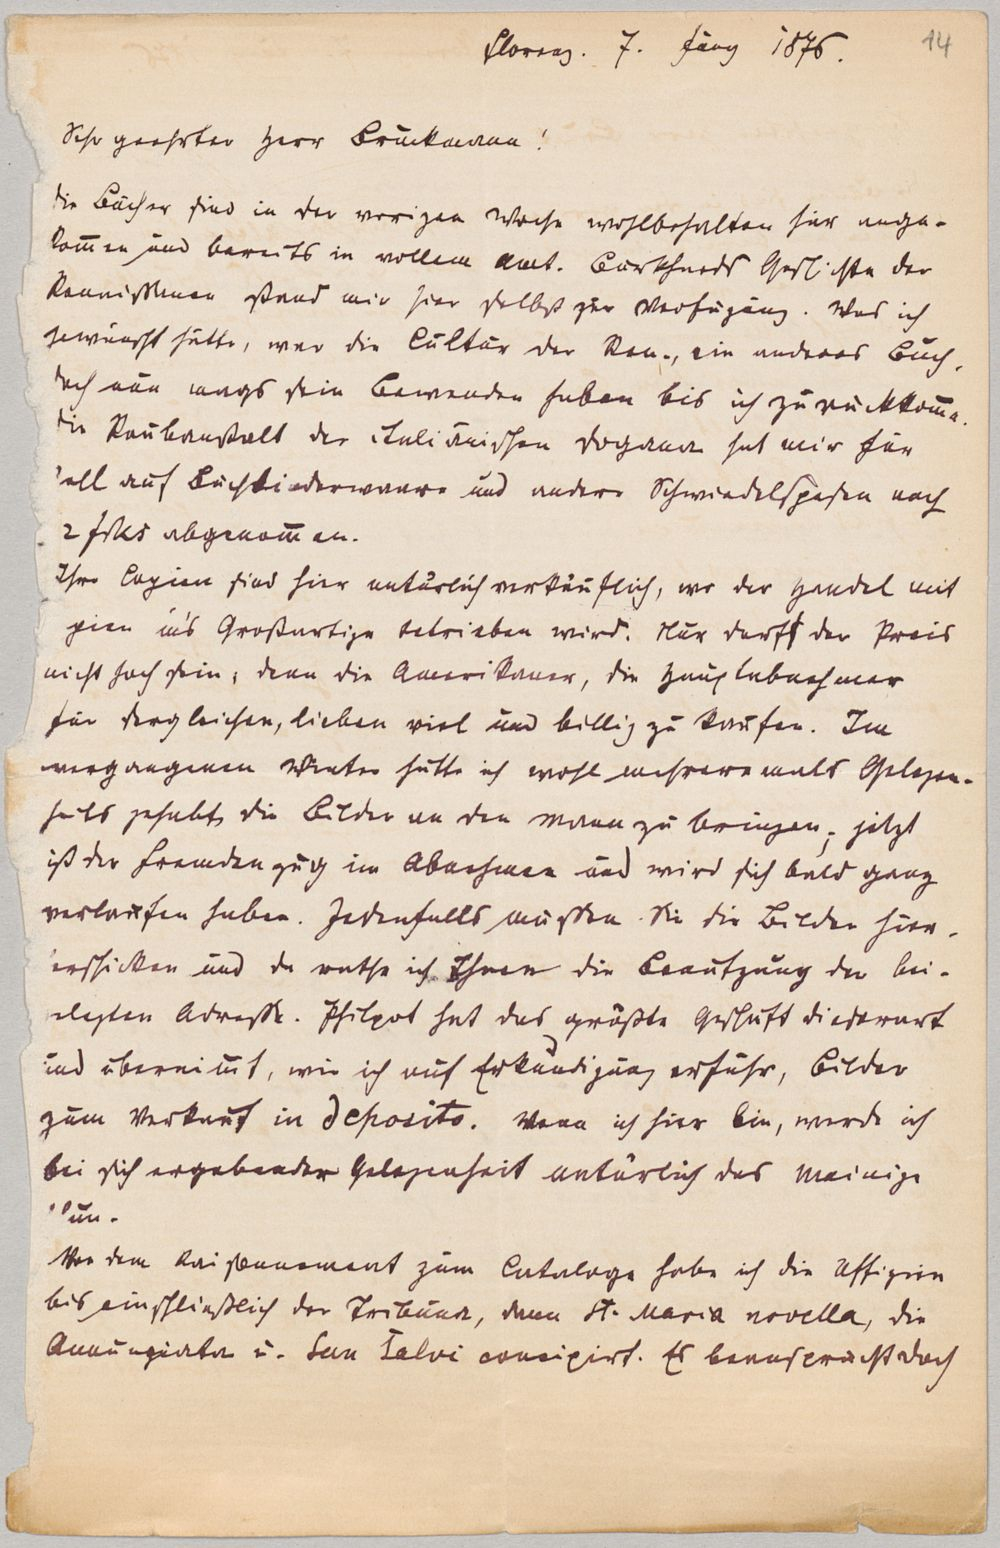 Florenz. 7. Juny 1876.
14
Sehr geehrter Herr Bruckmann!
die Bücher sind in der vorigen Woche wohlbehalten hier ange-
kommen und bereits in vollem Amt. Burkhards Geschichte der
Rennissance stand mir hier selbst zur Verfügung. Was ich
gewünscht hätte, war die Cultur der Ren., ein anderes Buch,
doch nun mags sein Bewenden haben bis ich zurückkomme.
die Raubanstalt der italiänischen Dogana hat mir für
Zoll auf Buchbinderwaare und andere Schwindelspesen noch
2 frks abgenommen.
Ihre Copien sind hier natürlich verkäuflich, wo der Handel mit
pien in's Großartige betrieben wird. Nur darf der Preis
nicht hoch sein; denn die Amerikaner, die Hauptabnehmer
für dergleichen, lieben viel und billig zu kaufen. Im
vergangenen Winter hätte ich wohl mehreremals Gelegen-
heits gehabt die Bilder an den Mann zu bringen; jetzt
ist der Fremdenzug im Abnehmen und wird sich bald ganz
verlaufen haben. Jedenfalls müssen Sie die Bilder hier-
herschicken und da rathe ich Ihnen die Benutzung der bei-
gelegten Adresse. Philpot hat das größte Geschäft dieserart
und übernimmt, wie ich auf Erkundigung erfuhr, Bilder
zum Verkauf in deposito. Wenn ich hier bin, werde ich
bei sich ergebender Gelegenheit natürlich das Meinige
thun.
Von dem Raisonnement zum Cataloge habe ich die Uffizien
bis einschließlich der Tribuna, dann St. Maria novella, die
Annunziata u. San Salvi concipirt. Es beansprucht doch